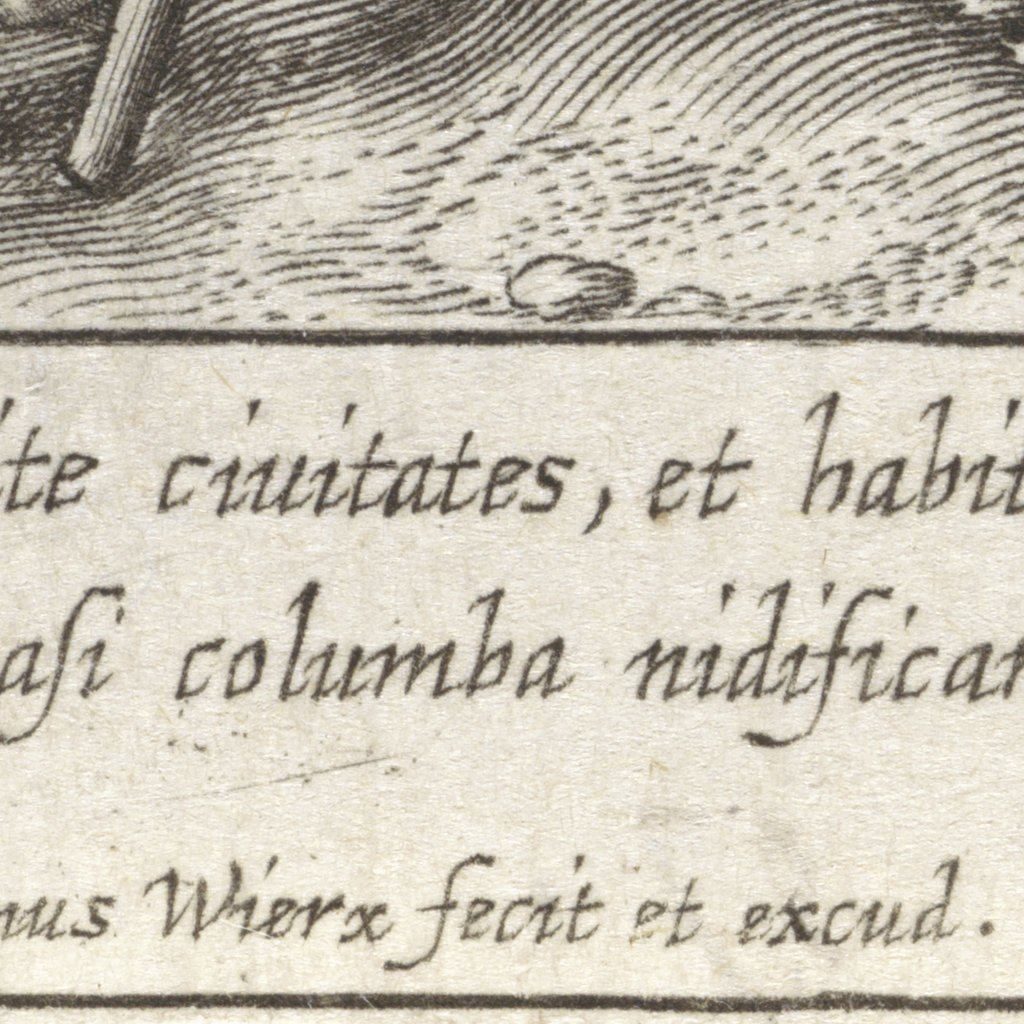 ite ciuitates, et habit
aſi columba nidifican
nus Wierx fecit et excud.